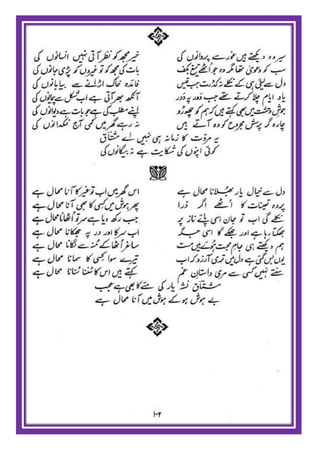 سیر وہ دیکھتے ہیں غور سے پروانوں کی خیر مجھ کو نظر آتی نہیں انسانوں کی
سب کو دعویٰ تھا مگر وہ جو اٹھے تیغ بکف بات کی مجھ کو تو غیروں کو پڑی جانوں کی
دل سے لیلیٰ ہی کے نکلے نہ کدورت جب قیس فائدہ خاک اڑانے سے بیابانوں کی
یاد ایام چلا کرتے تھے جب دور پہ دور آنکھ بھر آتی ہے اب شکل سے پیمانوں کی
جوش وحشت میں بھی ہم کہتے ہیں کو چھوڑو اپنے مطلب کی ہے جو بات ہے دیوانوں کی
چارہ گر پرسش مجروح کو وہ آتے ہیں نہ رہے گھر میں کمی آج نمکدانوں کی
یہ مروت کا زمانہ ہی نہیں اے مشتاق
کوئی اپنوں کی شکایت ہے نہ بیگانوں کی
دل سے خیال یار بھلانا محال ہے اس گھر میں اب تو غیر کا آنا محال ہے
پردہ تعینات کا اٹھے اگر ذرا پھر ہوش میں کسی کا بھی آنا محال ہے
نکلے گی اب تو جان اسی پائے ناز پر جب رکھ دیا ہے سر تو اٹھانا محال ہے
جھکتا رہا ہے اور جھکے گا اسی جگہ اب سر کا اور در پہ جھکانا محال ہے
ہم دیکھتے ہی جام محبت ہوئے ہیں مست ساغر اٹھا کے منہ سے لگانا محال ہے
یوں بس گئی ہے دل میں تری آرزو کہ اب تیرے سوا کسی کا سمانا محال ہے
سنتے نہیں کسی سے مری داستان غم کہتے ہیں اس کا سننا سنانا محال ہے
مشتاق نشہ یار کی مئے کا بھی ہے عجب
بے ہوش ہو کے ہوش میں آنا محال ہے
۱۰۲